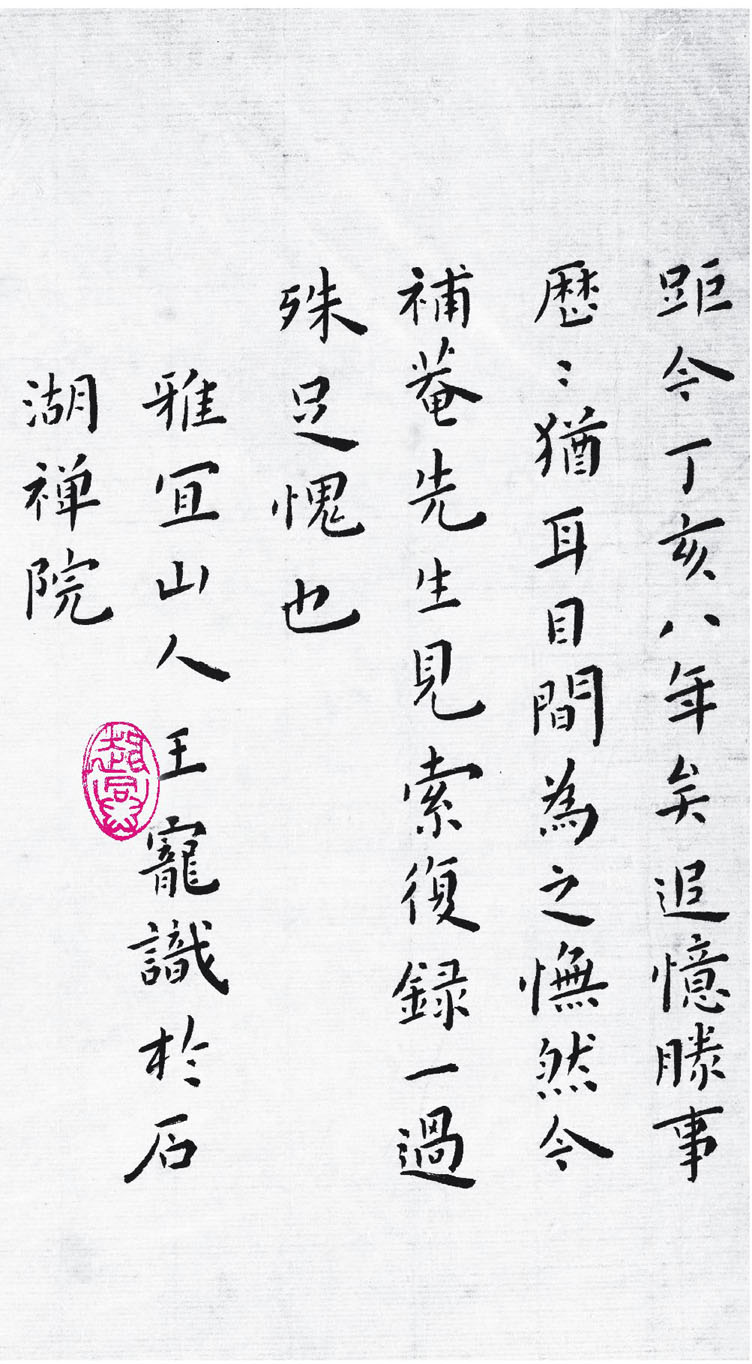 距今丁亥八年矣追憶勝事
歷〻猶耳目間為之憮然今
補菴先生見索復録一過
殊足愧也
雅宜山人王寵識於石
湖禅院